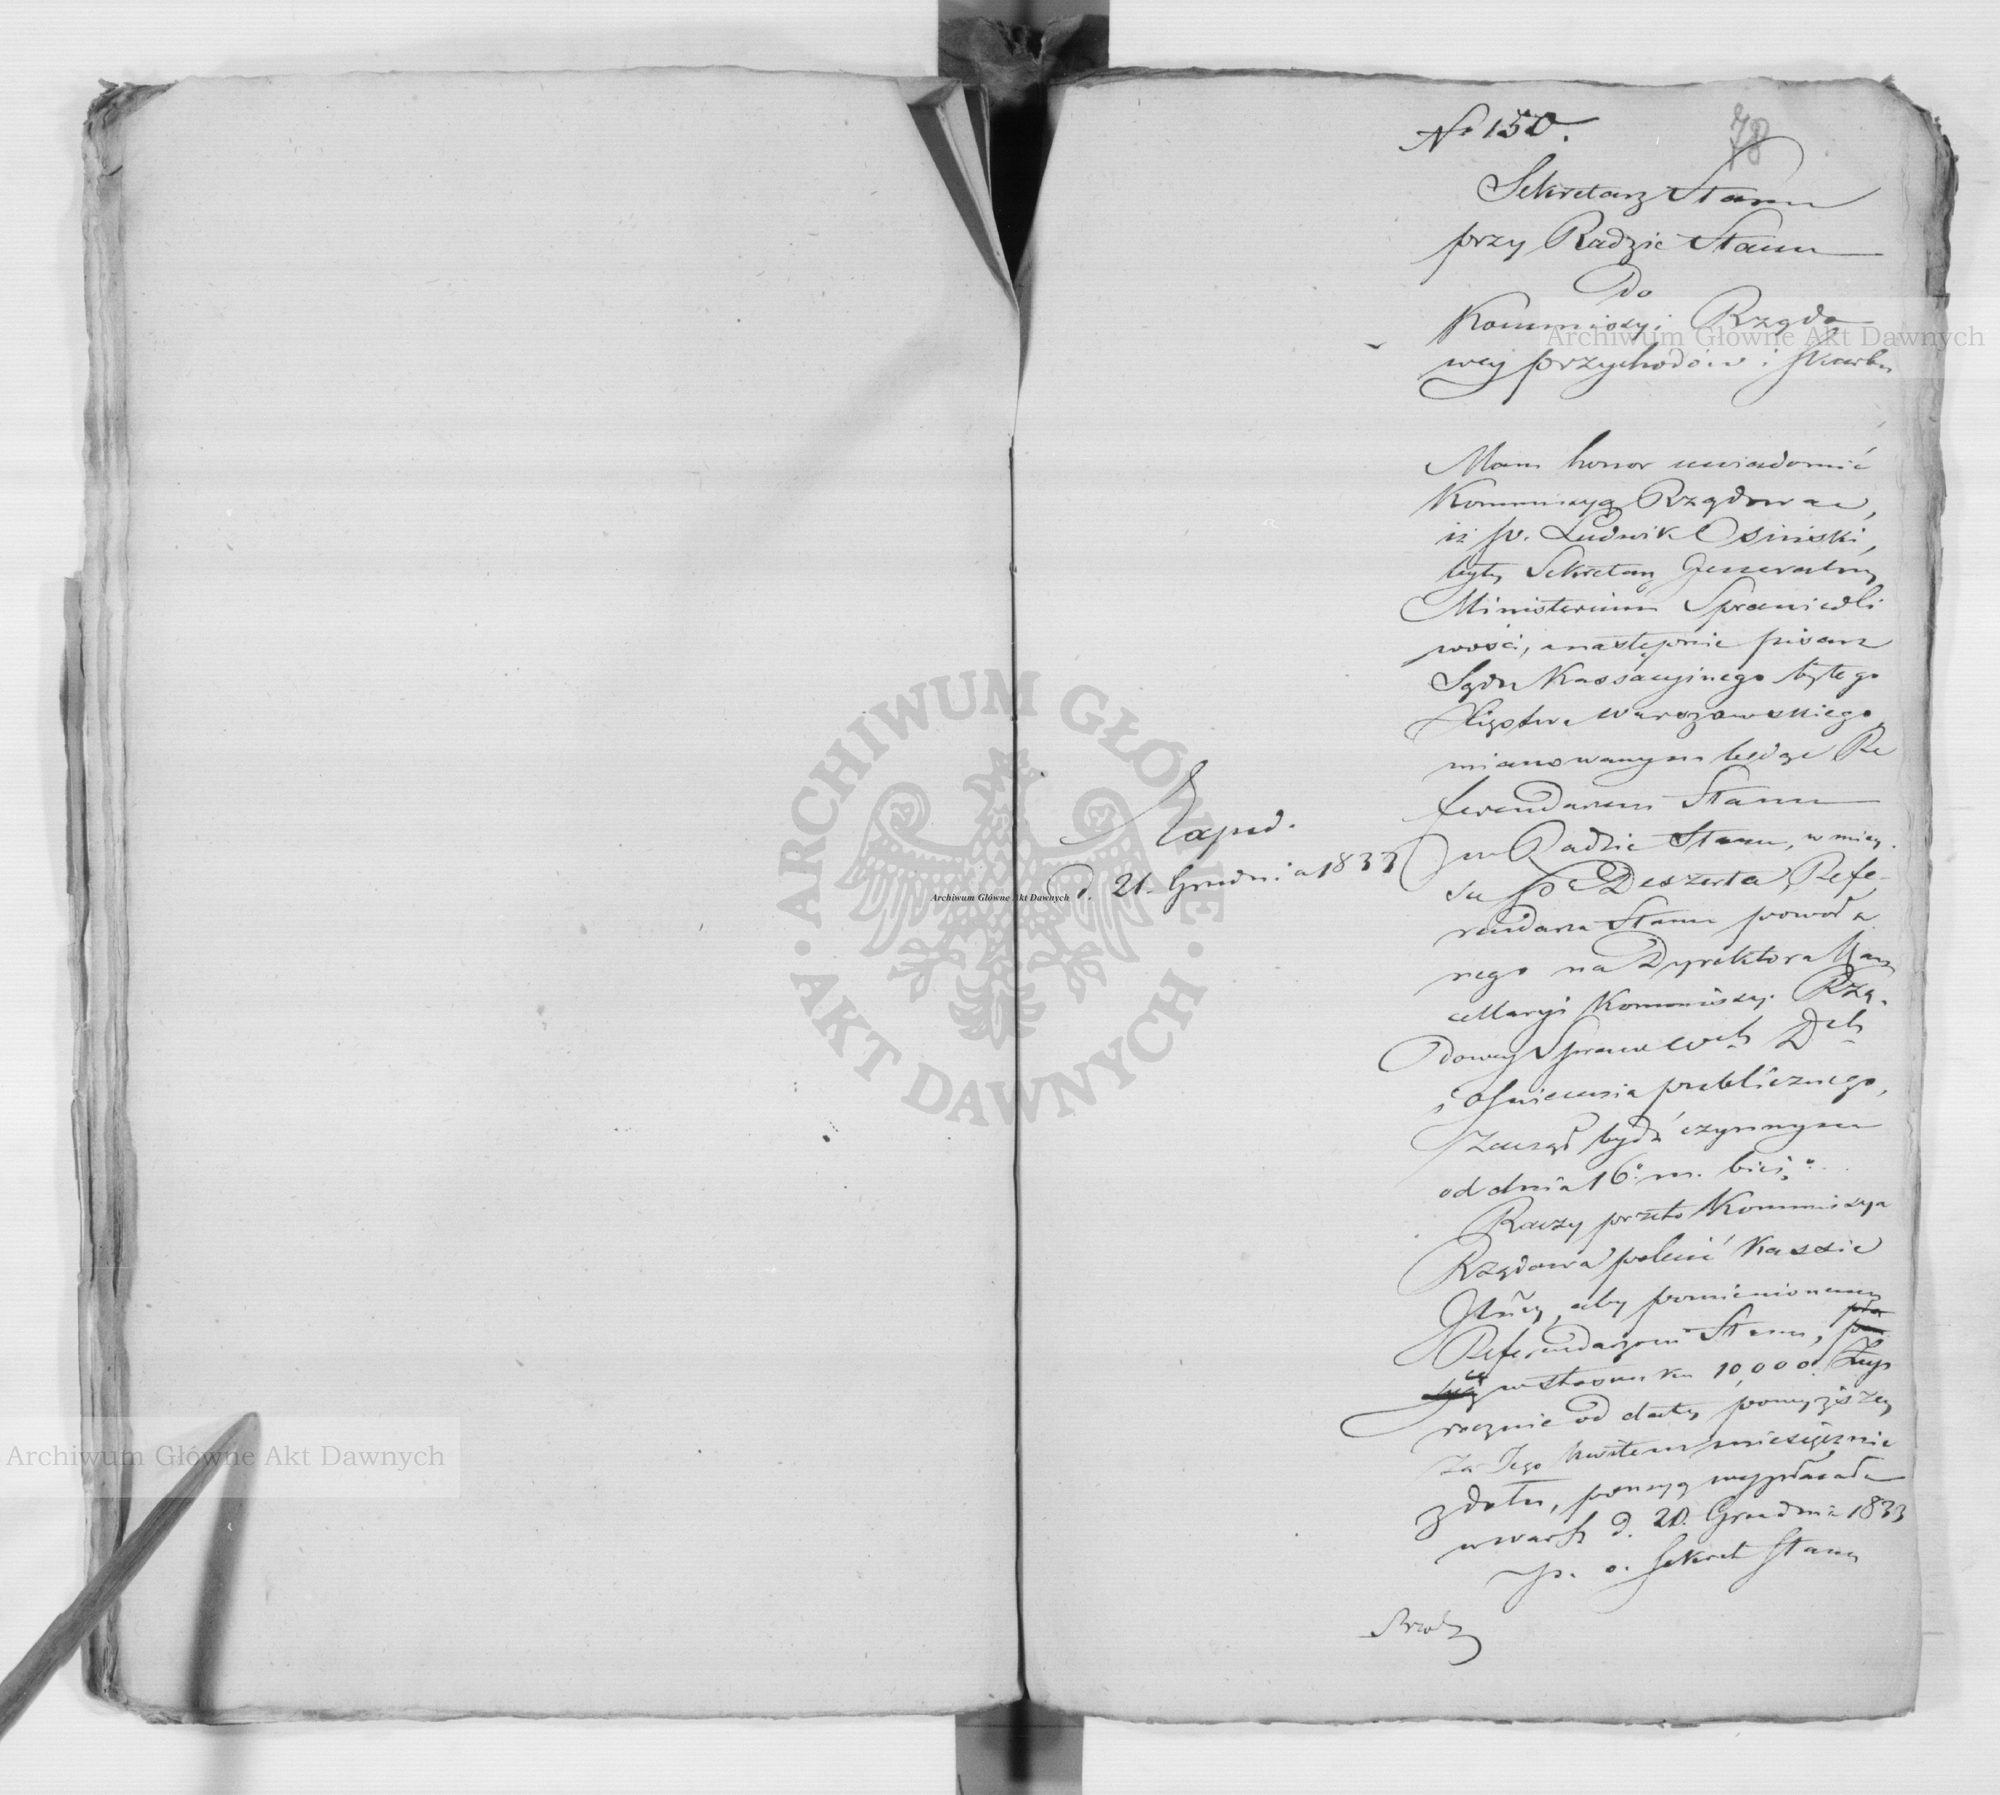 No 150.
78
Sekretarz Stanu
przy Radzie Stanu
Do
Kommissyi Rządo
wey przychodów i Skarbu
Mam honor uwiadomić
Kommissyą Rządową,
iż P. Ludwik Osiński,
były Sekretarz Generalny
Ministerium Sprawiedli
wości, a następnie pisarz
Sądu Kassacyjnego byłego
Xięstwa Warszawskiego,
mianowanym będąc Re
ferendarzem Stanu
w Radzie Stanu, w miey
sce Deszerta, Refe-
rendarza Stanu powoła
nego na Dyrektora Kan
cellaryi Kommissyi Rzą-
dowey Spraw Wch Dch
i Oświecenia publicznego,
zaczął bydź czynnym
od dnia 16. m. bież.
Raczy przeto Kommissya
Rządowa polecić Kassie
Głney, aby pomienionemu
Referendarzowi Stanu,
w stosunku 10,000 Złp
rocznie od daty powyższey
za Jego kwitem miesięcznie
z dołu, pensyą wypłacała
w Warsz. d. 20. Grudnia 1833
p. o. Sekret Stanu
Exped.
d. 21. Grudnia 1833
ARCHIWUM GŁÓWNE
· AKT DAWNYCH ·
Archiwum Główne Akt Dawnych
Archiwum Główne Akt Dawnych
Archiwum Główne Akt Dawnych